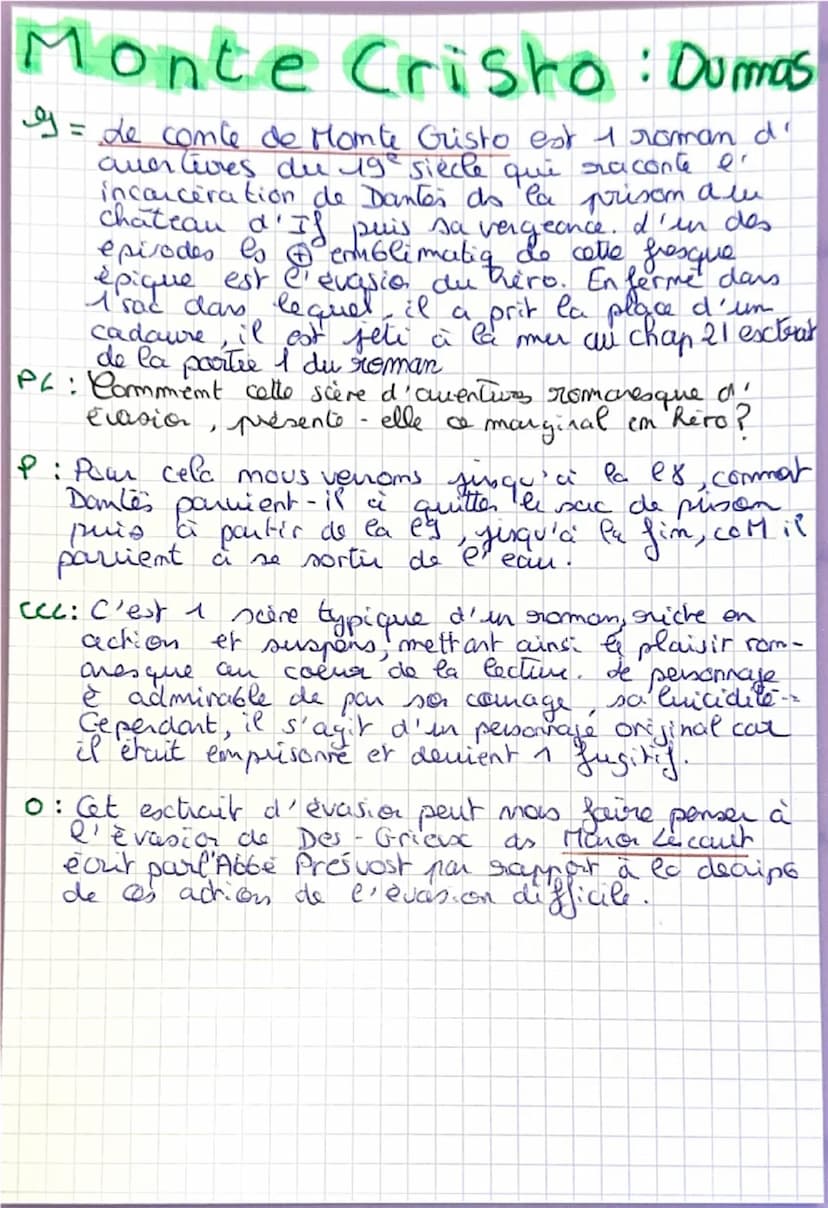 Monte Cristo : Dumas
Le comte de Monte Cristo est 1 roman d'
aventures du 19e siècle qui raconte l'
incarcération de Dantès ds la prison du
château d'If puis sa vengeance. L'un des
épisodes les ⊕ emblématiq de cette fresque
épique est l'évasion du héro. Enfermé dans
1 sac dans lequel, il a prit la place d'un
cadavre, il est jeté à la mer au chap 21 extrait
de la partie 1 du roman
PL : Comment cette scène d'aventures romanesque d'
évasion, présente-elle ce marginal en héro?
P : Pour cela nous verrons jusqu'à la l8, comment
Dantès parvient-il à quitter le sac de prison
puis à partir de la l9, jusqu'à la fin, coM il
parvient à se sortir de l'eau.
CCL: C'est 1 scène typique d'un roman, riche en
action et suspens, mettant ainsi le plaisir rom-
anesque au coeur de la lecture. Le personnage
è admirable de par son courage, sa lucidité...
Cependant, il s'agit d'un personnage original car
il était emprisonné et devient 1 fugitif.
O : Cet extrait d'évasion peut nous faire penser à
l'évasion de Des-Grieux ds Manon Lescaut
écrit par l'Abbé Prévost par rapport à la
de ces action de l'évasion difficile.